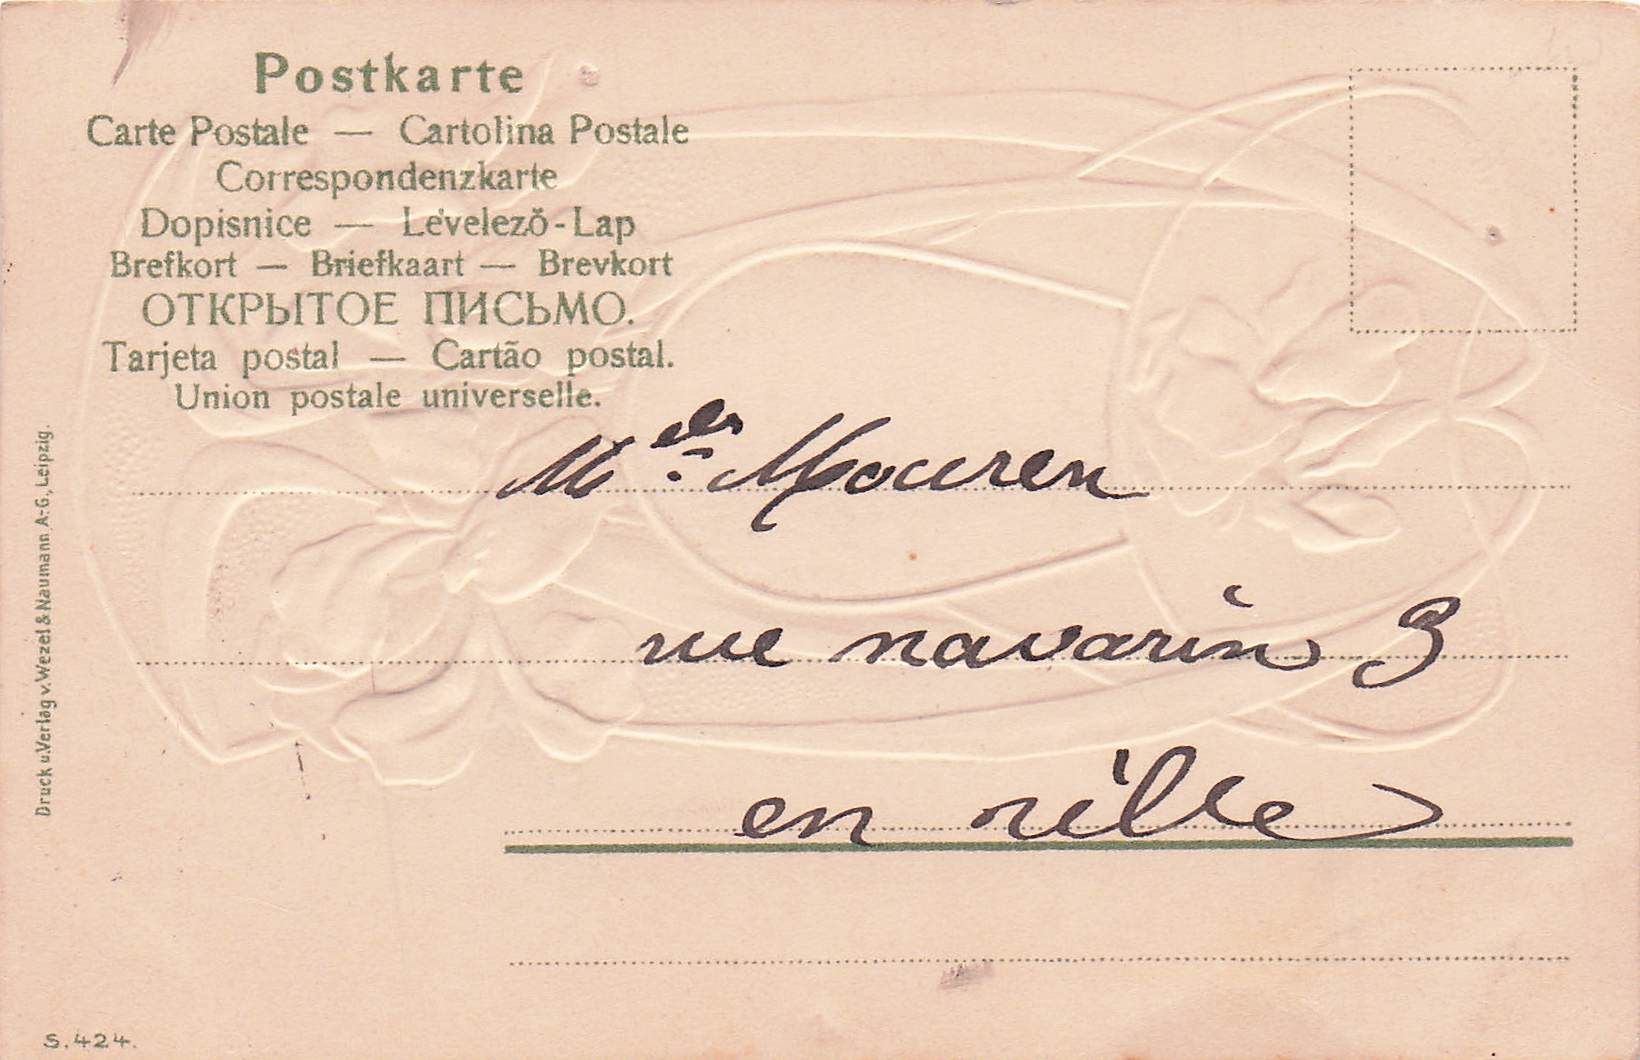 Postkarte
Carte Postale — Cartolina Postale
Correspondenzkarte
Dopisnice — Levelező-Lap
Brefkort — Briefkaart — Brevkort
ОТКРЫТОЕ ПИСЬМО.
Tarjeta postal — Cartão postal.
Union postale universelle.
Melles Mouren
rue navarin 9
en ville
Druck u. Verlag v. Wezel & Naumann A.-G., Leipzig.
S. 424.